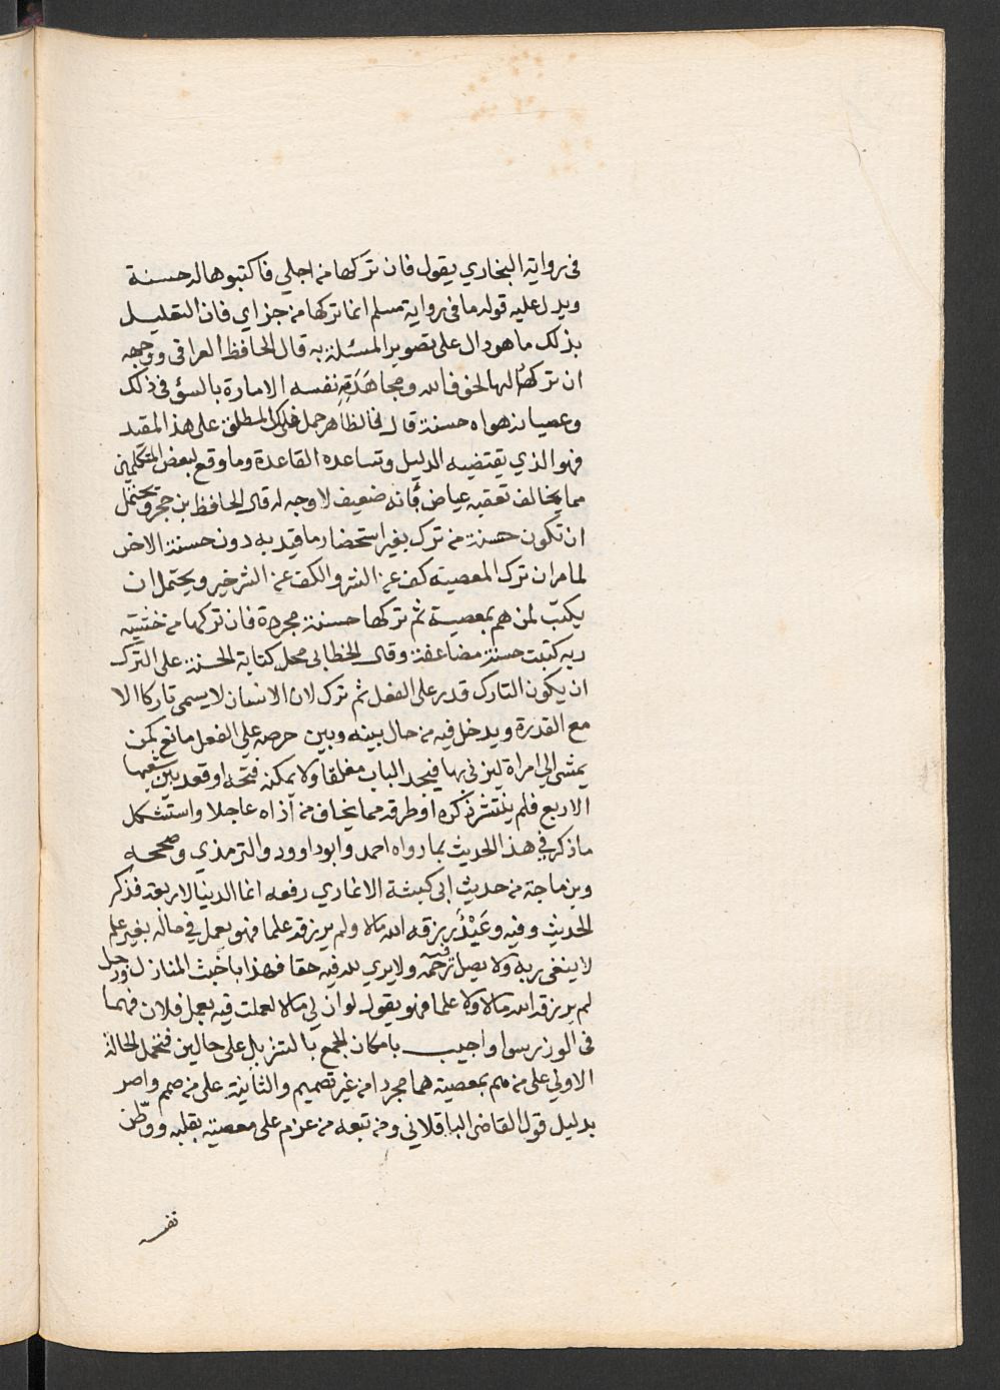 في رواية البخاري يقول فان تركها من اجلي فاكتبوها له حسنة
ويدل عليه قوله ما في رواية مسلم انما تركها من جزاي فان التعليل
بذلك ما هو دال على تصوير المسئلة به قال الحافظ العراقي ووجهه
ان تركه لها لخوف الله ومجاهدته نفسه الامارة بالسؤ في ذلك
وعصيانه هواه حسنة قال فالظاهر حمل ذلك المطلق على هذا المقيد
فهو الذي يقتضيه الدليل وتساعده القاعدة وما وقع لبعض المتكلمين
مما يخالف تعقبه عياض بأنه ضعيف لا وجه له قال الحافظ بن حجر ويحتمل
ان تكون حسنة من ترك بغير استحضار ما قيد به دون حسنة الاخر
لما مر ان ترك المعصية كف عن الشر والكف عن الشر خير ويحتمل ان
يكتب لمن هم بمعصية ثم تركها حسنة مجردة فان تركها من خشية
ربه كتبت حسنة مضاعفة وقال الخطابي محل كتابة الحسنة على الترك
ان يكون التارك قدر على الفعل ثم ترك لان الانسان لا يسمى تاركا الا
مع القدرة ويدخل فيه من حال بينه وبين حرصه علي الفعل مانع كمن
يمشي الي امراة ليزني بها فيجد الباب مغلقا ولا يمكنه فتحه او قعد بين شعبها
الاربع فلم ينتشر ذكره او طرقه مما يخاف من آذاه عاجلا واستشكل
ما ذكر في هذا الحديث بما رواه احمد وابو داوود والترمذي وصححه
وبن ماجة من حديث ابي كبشة الانماري رفعه انما الدنيا لاربعة فذكر
الحديث وفيه وعبد رزقه الله مالا ولم يرزقه علما فهو يعمل في ماله بغير علم
لا يتقي ربه ولا يصل رحمه ولا يري لله فيه حقا فهذا باخبث المنازل ورجل
لم يرزقه الله مالا ولا علما فهو يقول لو ان لي مالا لعملت فيه بعمل فلان فهما
في الوزر سوا واجيب بامكان الجمع بالتنزيل على حالين فتحمل الحالة
الاولي على من هم بمعصية هما مجردا من غير تصميم والثانية على من صمم واصر
بدليل قول القاضي الباقلاني ومن تبعه من عزم على معصية بقلبه ووطن
نفسه